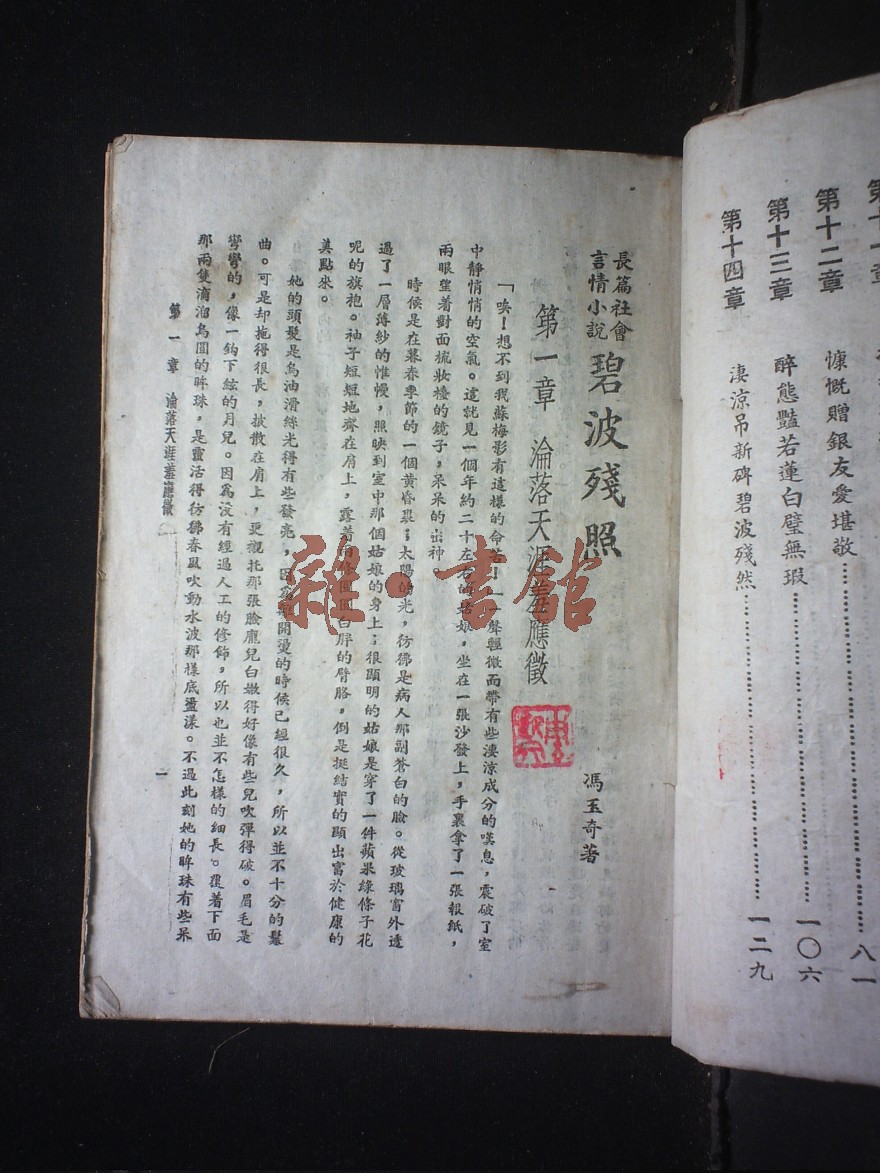 第十二章
慷慨贈銀友愛堪敬
八一
第十三章
醉態豔若蓮白璧無瑕
一〇六
第十四章
淒涼吊新碑碧波殘然
一二九
長篇社會
言情小說
碧波殘照
馮玉奇著
第一章 淪落天涯羞應徵
「唉！想不到我蘇梅影有這樣的命苦！」一聲輕微而帶有些淒涼成分的嘆息，震破了室
中靜悄悄的空氣。這就見一個年約二十左右的姑娘，坐在一張沙發上，手裏拿了一張報紙，
兩眼望着對面梳妝檯的鏡子，呆呆的出神。
時候是在暮春季節的一個黃昏裏；太陽的光，彷彿是病人那副蒼白的臉。從玻璃窗外透
過了一層薄紗的帷幔，照映到室中那個姑娘的身上；很顯明的姑娘是穿了一件蘋果綠條子花
呢的旗袍。袖子短短地齊在肩上，露着兩條圓圓白胖的臂胳，倒是挺結實的顯出富於健康的
美點來。
她的頭髮是烏油滑絲光得有些發亮，因爲離開燙的時候已經很久，所以並不十分的鬈
曲。可是却拖得很長，披散在肩上，更襯托那張臉龐兒白嫩得好像有些兒吹彈得破。眉毛是
彎彎的，像一鈎下絃的月兒。因爲没有經過人工的修飾，所以也並不怎樣的細長。覆着下面
那兩隻滴溜烏圓的眸珠，是靈活得彷彿春風吹動水波那樣底盪漾。不過此刻她的眸珠有些呆
第一章 淪落天涯羞應徵
一
雜·書館